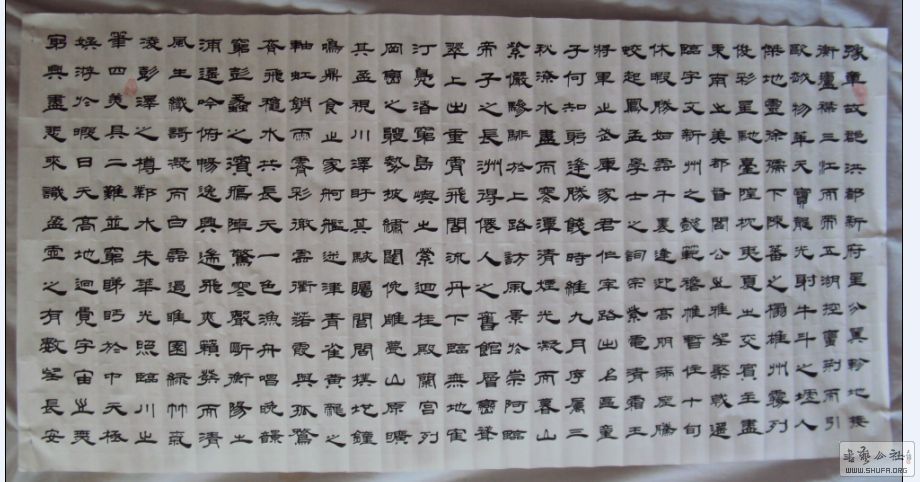 豫章故郡洪都新府星分翼軫地接
衡廬襟三江而帶五湖控蠻荊而引
甌越物華天寶龍光射牛斗之墟人
傑地靈徐孺下陳蕃之榻雄州霧列
俊彩星馳臺隍枕夷夏之交賓主盡
東南之美都督閻公之雅望棨戟遙
臨宇文新州之懿範襜帷暫住十旬
休暇勝如雲千裏逢迎高朋滿座騰
蛟起鳳孟學士之詞宗紫電清霜王
將軍之武庫家君作宰路出名區童
子何知躬逢勝餞時維九月序屬三
秋潦水盡而寒潭清煙光凝而暮山
紫儼驂騑於上路訪風景於崇阿臨
帝子之長洲得僊人之舊館層巒聳
翠上出重霄飛閣流丹下臨無地隺
汀鳧渚窮島嶼之縈迴桂殿蘭宮列
岡巒之體勢披繡闥俛雕甍山原曠
其盈視川澤盱其駭矚閭閻撲地鐘
鳴鼎食之家舸艦迷津青雀黃龍之
軸虹銷雨霽彩徹雲衢落霞與孤鶩
齊飛秋水共長天一色漁舟唱晚響
窮彭蠡之濱雁陣驚寒聲斷衡陽之
浦遙吟俯暢逸興遄飛爽籟發而清
風生纖歌凝而白雲遏睢園綠竹氣
凌彭澤之樽鄴水朱華光照臨川之
筆四美具二難並窮睇眄於中天極
娛游於暇日天高地迥覺宇宙之無
窮興盡悲來識盈虛之有數望長安
书法公社
WWW.SHUFA.ORG